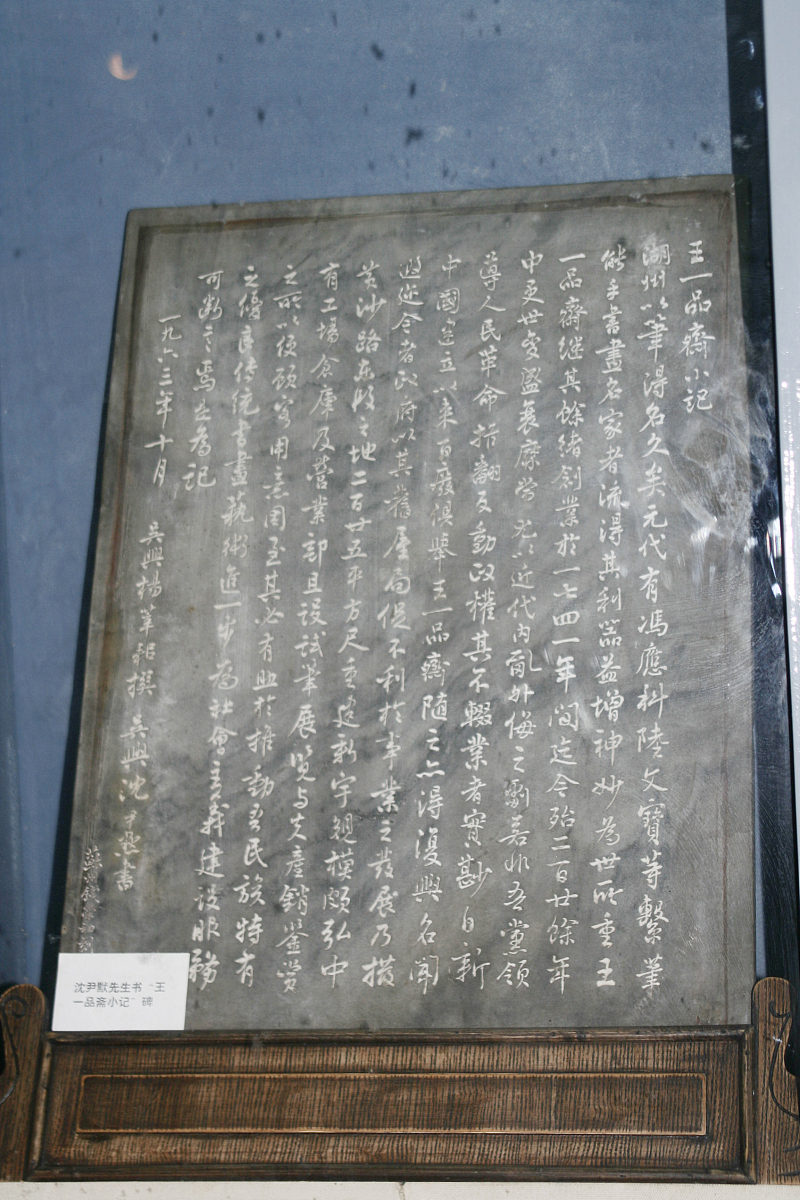 王一品齋小記
湖州以筆得名久矣元代有馮應科陸文寶等繫筆
能手書畫名家者流得其利器益增神妙為世所重王
一品齋繼其餘緒創業於一七四一年間迄今殆二百廿餘年
中更世變盛衰靡常尤以近代內亂外侮之劇若非吾黨領
導人民革命推翻反動政權其不輟業者實尠自新
中國建立以來百廢俱舉王一品齋隨之亦得復興名聞
遐迩今者政府以其舊廛局促不利於事業之發展乃撥
黃沙路東段之地二百廿五平方尺重建新宇規模頗弘中
有工場倉庫及營業部且設試筆展覽与文產銷鉴賞
之所以便顧客用意周至其必有助於推動吾民族特有
之優良傳統書畫藝術進一步為社會主義建設服務
可斷言焉是為記
一九六三年十月
吳興楊莘耜撰 吳興沈尹默書
沈尹默先生书“王
一品斋小记”碑